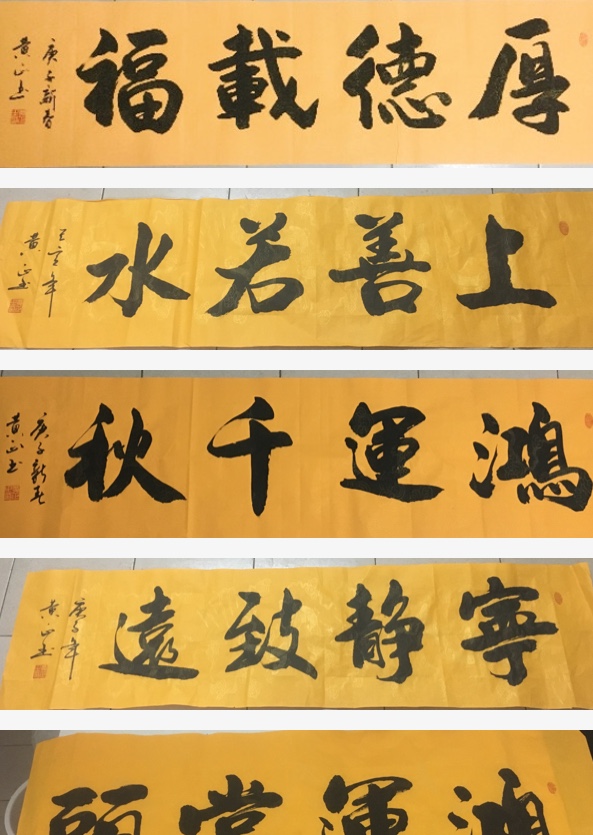 厚德載福
庚子新春
黄山書
上善若水
己亥年
黄山書
鴻運千秋
庚子新春
黄山書
寧靜致遠
庚子年
黄山書
鴻運當頭